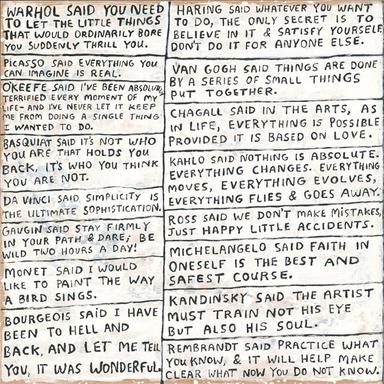 WARHOL SAID YOU NEED
TO LET THE LITTLE THINGS
THAT WOULD ORDINARILY BORE
YOU SUDDENLY THRILL YOU.
PICASSO SAID EVERYTHING YOU
CAN IMAGINE IS REAL.
OKEEFE SAID I'VE BEEN ABSOLUTELY
TERRIFIED EVERY MOMENT OF MY
LIFE- AND I'VE NEVER LET IT KEEP
ME FROM DOING A SINGLE THING
I WANTED TO DO.
BASQUIAT SAID IT'S NOT WHO
YOU ARE THAT HOLDS YOU
BACK, IT'S WHO YOU THINK
YOU ARE NOT.
DA VINCI SAID SIMPLICITY IS
THE ULTIMATE SOPHISTICATION.
GAUGIN SAID STAY FIRMLY
IN YOUR PATH & DARE; BE
WILD TWO HOURS A DAY!
MONET SAID I WOULD
LIKE TO PAINT THE WAY
A BIRD SINGS.
BOURGEOIS SAID I HAVE
BEEN TO HELL AND
BACK, AND LET ME TELL
YOU, IT WAS WONDERFUL.
HARING SAID WHATEVER YOU WANT
TO DO, THE ONLY SECRET IS TO
BELIEVE IN IT & SATISFY YOURSELF.
DON'T DO IT FOR ANYONE ELSE.
VAN GOGH SAID THINGS ARE DONE
BY A SERIES OF SMALL THINGS
PUT TOGETHER.
CHAGALL SAID IN THE ARTS, AS
IN LIFE, EVERYTHING IS POSSIBLE
PROVIDED IT IS BASED ON LOVE.
KAHLO SAID NOTHING IS ABSOLUTE.
EVERYTHING CHANGES. EVERYTHING
MOVES, EVERYTHING EVOLVES,
EVERYTHING FLIES & GOES AWAY.
ROSS SAID WE DON'T MAKE MISTAKES,
JUST HAPPY LITTLE ACCIDENTS.
MICHELANGELO SAID FAITH IN
ONESELF IS THE BEST AND
SAFEST COURSE.
KANDINSKY SAID THE ARTIST
MUST TRAIN NOT HIS EYE
BUT ALSO HIS SOUL.
REMBRANDT SAID PRACTICE WHAT
YOU KNOW, & IT WILL HELP MAKE
CLEAR WHAT NOW YOU DO NOT KNOW.